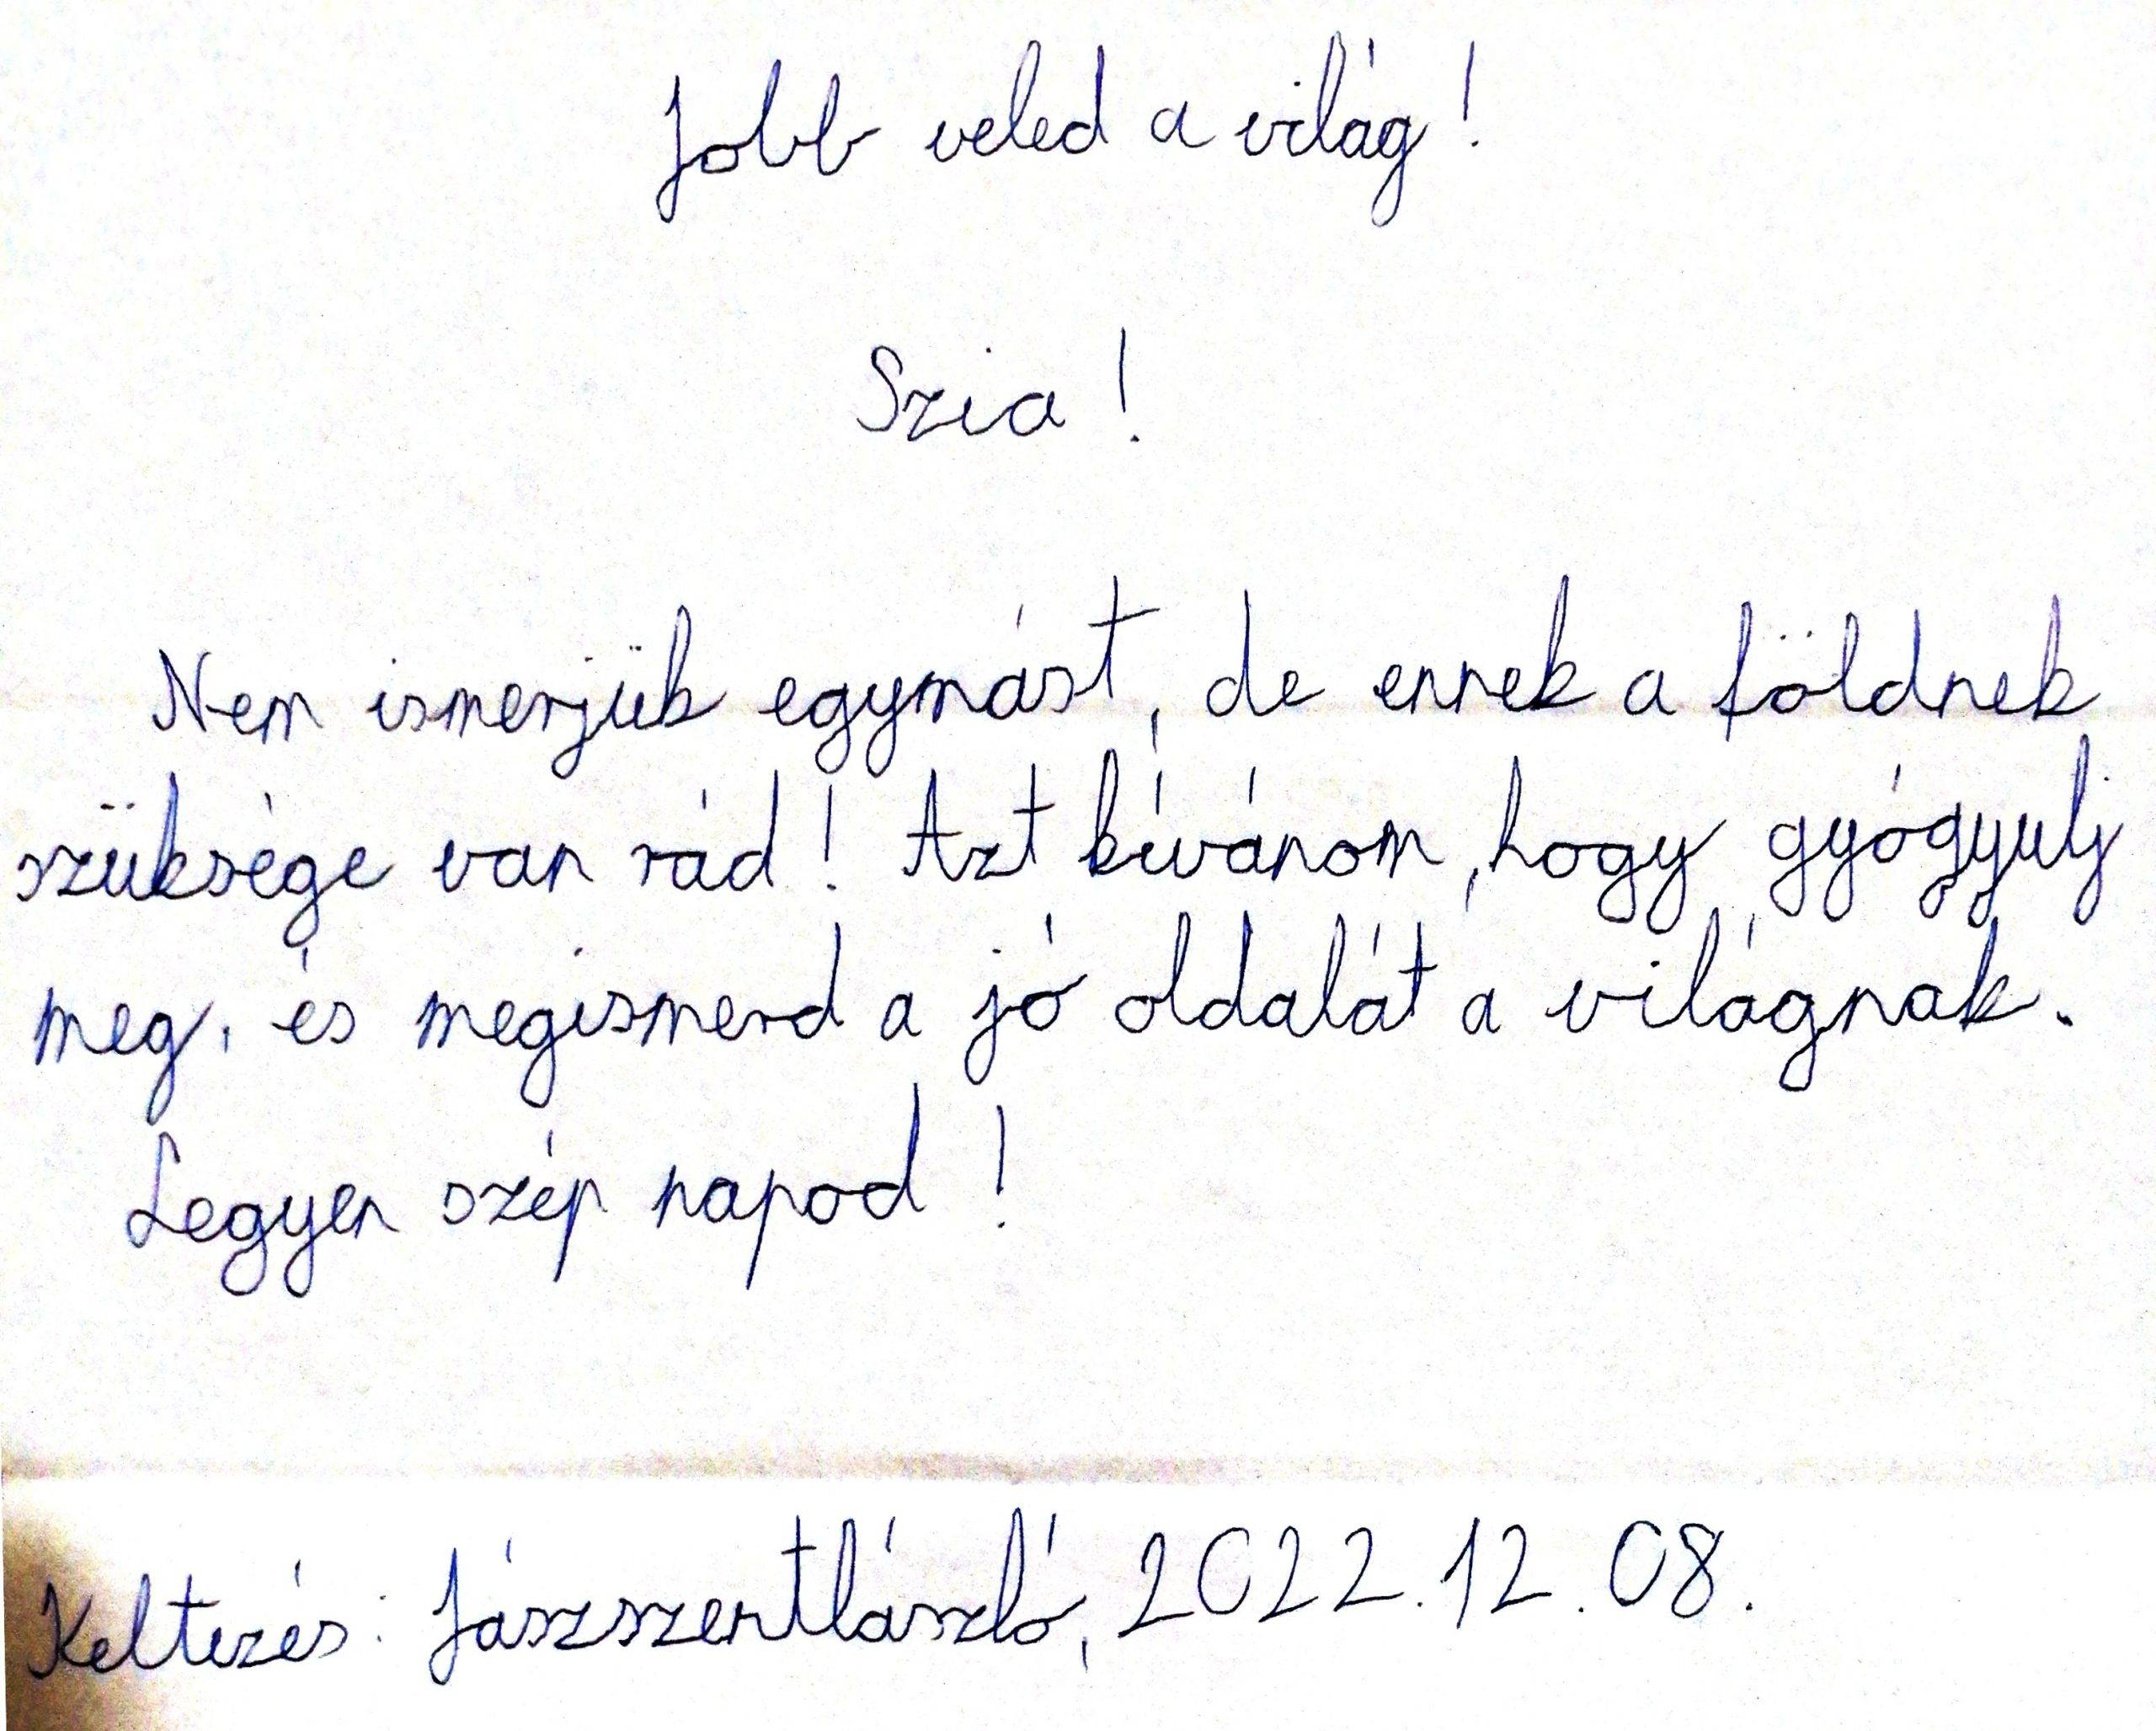 Jobb veled a világ!
Szia!
Nem ismerjük egymást, de ennek a földnek
szüksége van rád! Azt kívánom, hogy gyógyulj
meg, és megismerd a jó oldalát a világnak.
Legyen szép napod!
Keltezés: Jászszentlászló, 2022.12.08.